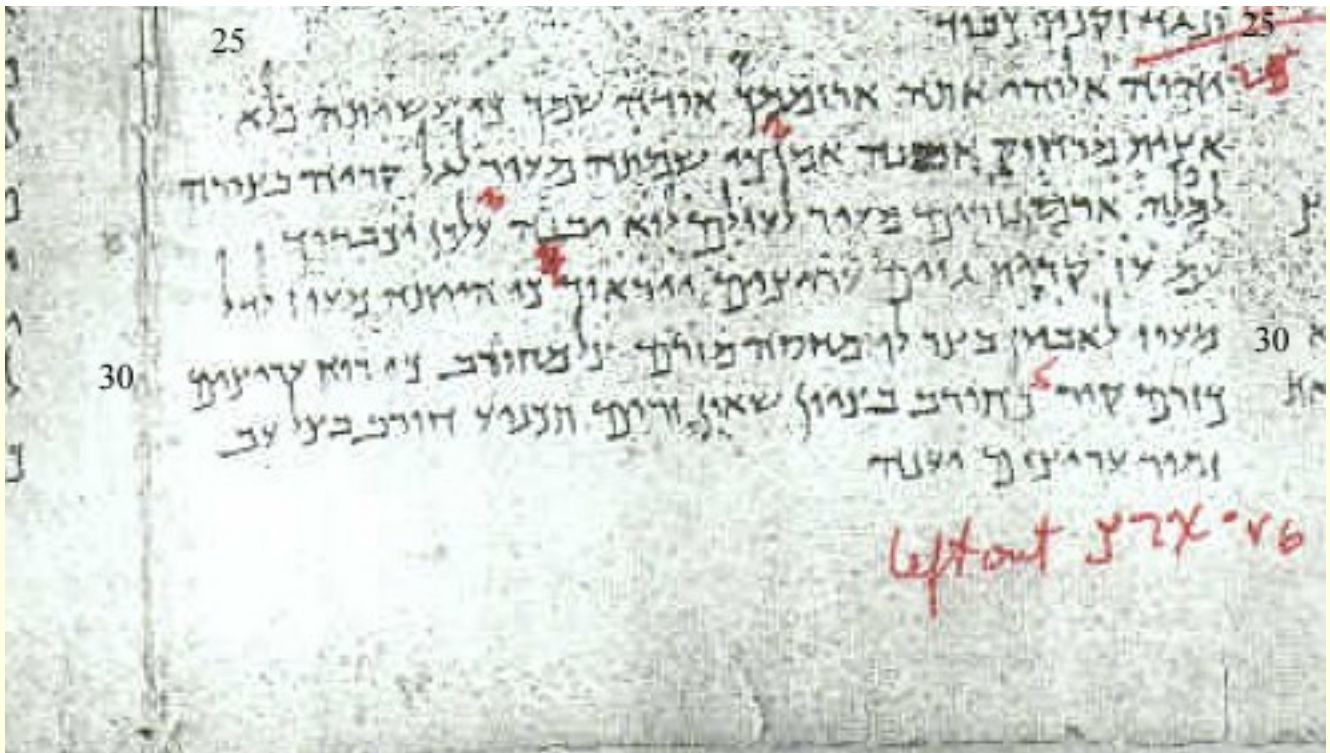 25 ונגד זקניו כבוד 25
יהוה אלוהי אתה ארוממך אודה שמך כי עשיתה פלא 25
אצית מרחוק אמנה אמן כי שמתה מעיר לגל קריה בצורה
למפלה ארמון זרים מעיר לעולם לוא יבנה על כן יכבדוך
עם עז קרית גוים עריצים ייראוך כי הייתה מעוז לדל
מעוז לאביון בצר לו מחסה מזרם צל מחורב כי רוח עריצים 30
30 כזרם קיר כחורב בציון שאון זרים תכניע חורב בצל עב
זמיר עריצים יענה
left out ארץ - v6